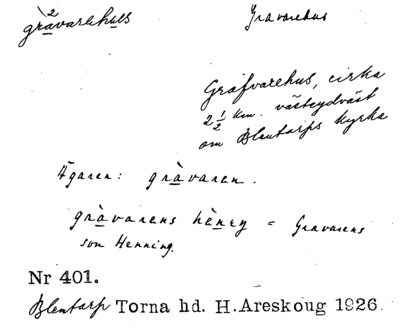 grà²varehu̲s Gravarehus
Gräfvarehus, cirka
2 ½ km. västsydväst
om Blentarps kyrka
Ägaren: grà̲varen.
grà̲varens hènry = Gravarens
son Henning.
Nr 401.
Blentarp Torna hd. H. Areskoug 1926.